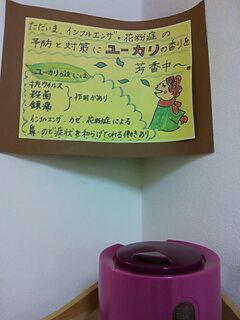 ただいま、インフルエンザ・花粉症の
予防と対策にユーカリの香りを
芳香中〜。
ユーカリ
抗ウイルス
殺菌
鎮痛
作用があり、
インフルエンザ、カゼ、花粉症による
鼻・のど症状を和らげてくれる働きあり